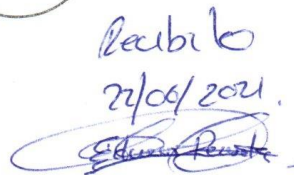 Recibido
22/06/2021.